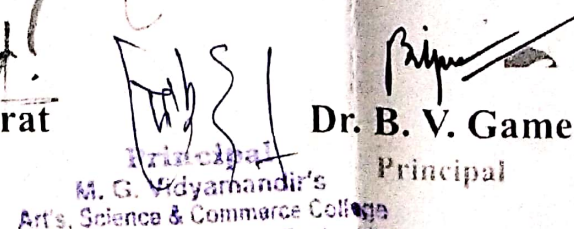 rat
Dr. B. V. Game
Principal
Principal
M. G. Vidyamandir's
Art's, Science & Commerce College